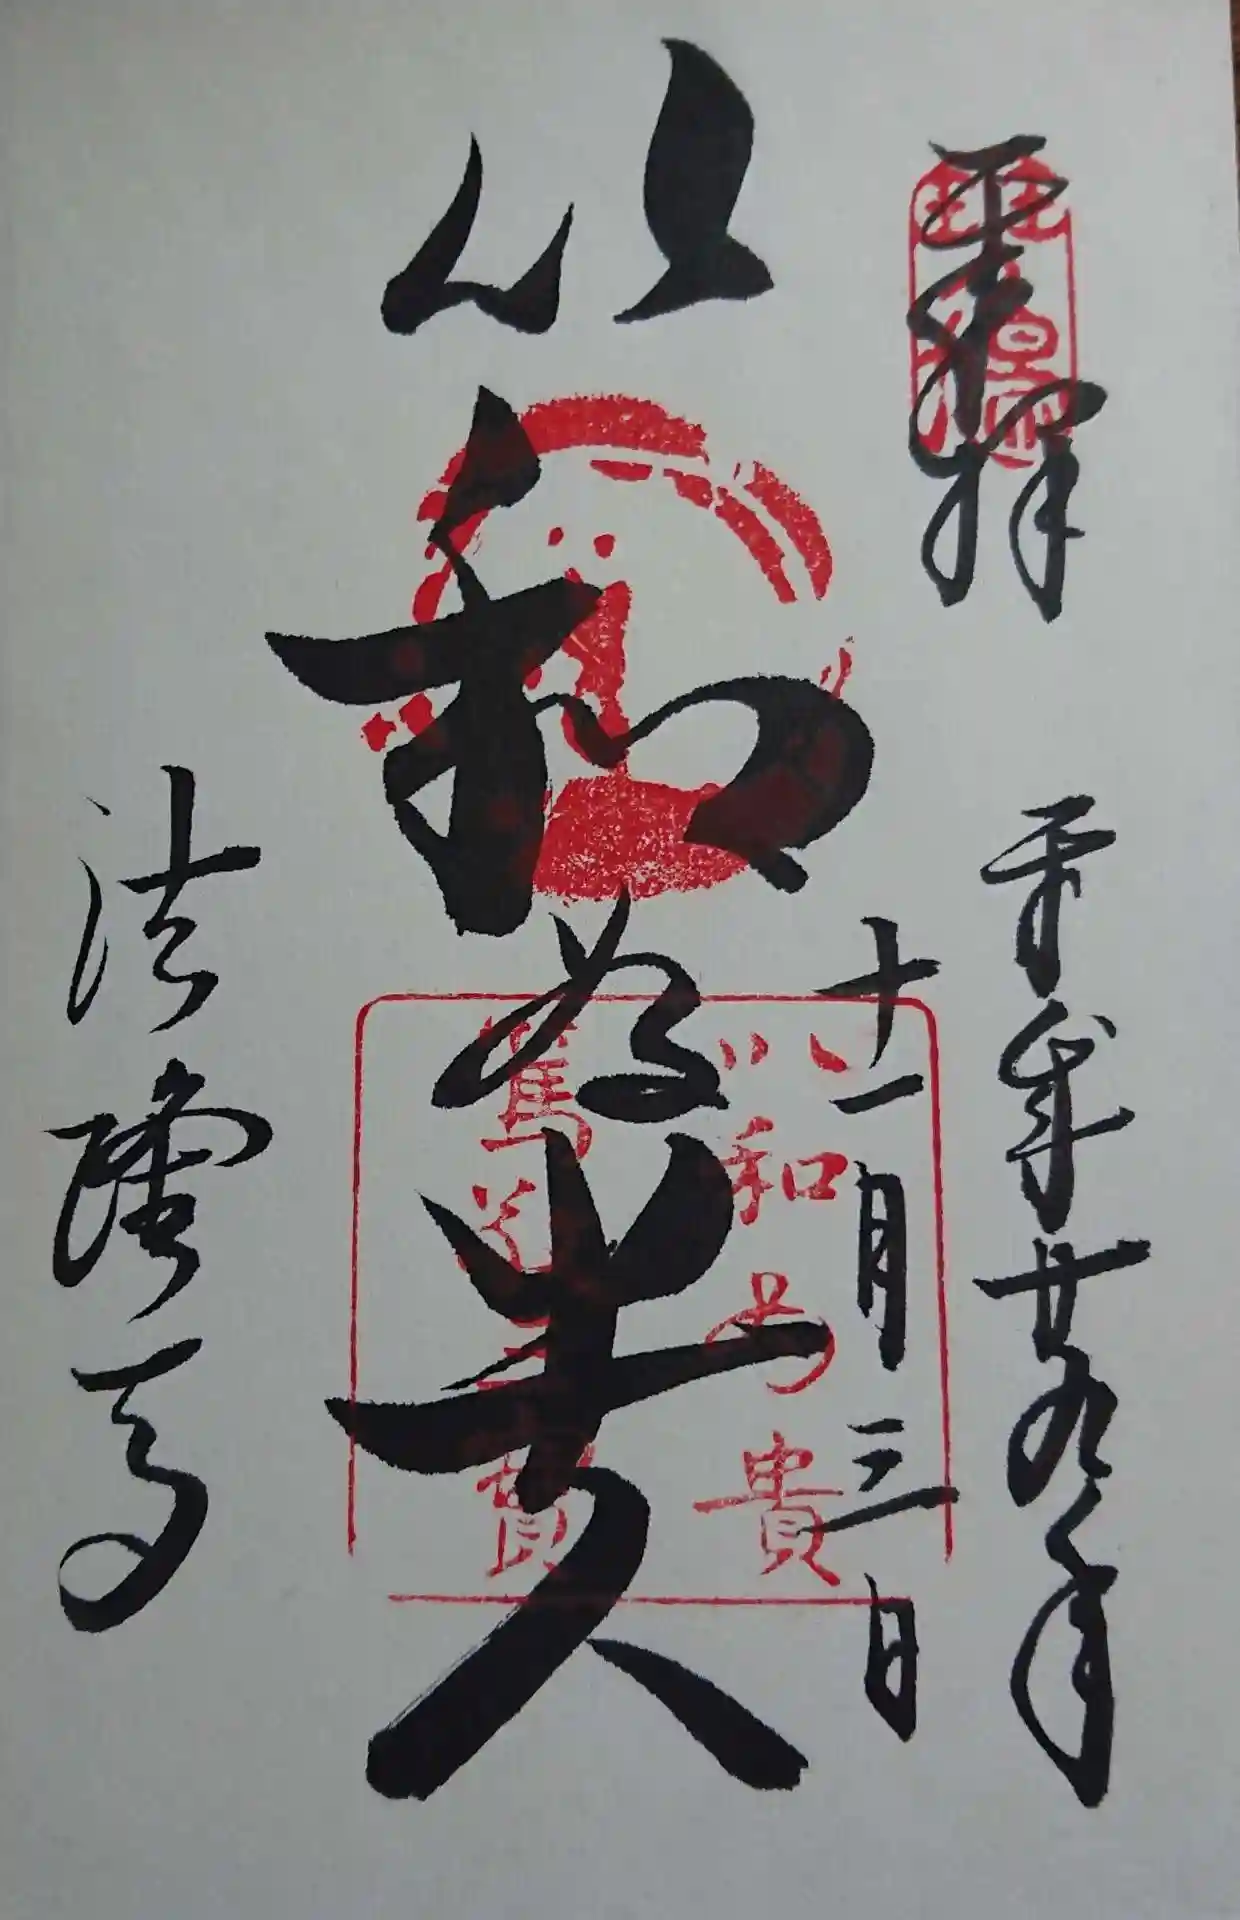 奉拝
平成廿九年
十一月三日
以和為貴
以和為貴
篤敬三寶
法隆寺